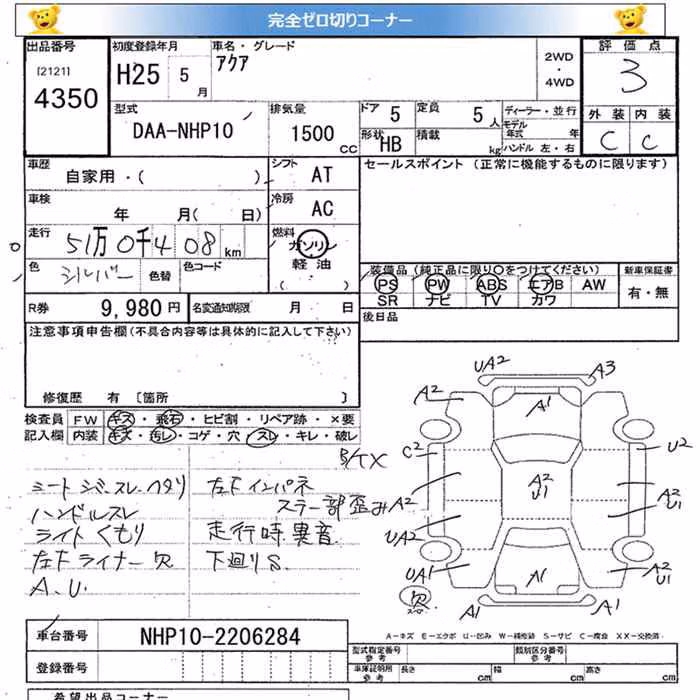 完全ゼロ切りコーナー
出品番号
[2121]
4350
初度登録年月
H25 5 月
車名・グレード
アクア
2WD
・
4WD
評価点
3
型式
DAA-NHP10
排気量
1500 cc
ドア 5
定員 5 人
形状 HB
積載 kg
ディーラー・並行
モデル年式 年
ハンドル 左・右
外装 内装
C C
車歴
自家用・( )
シフト AT
セールスポイント (正常に機能するものに限ります)
車検
年 月( 日)
冷房 AC
走行
51万 0千4 08 km
燃料
ガソリン
軽油
色
シルバー
色替
色コード
装備品 (純正品に限り○をつけてください)
PS PW ABS エアB AW
SR ナビ TV カワ
新車保証書
有・無
R券 9,980 円
名変通知期限 月 日
後日品
注意事項申告欄(不具合内容等は具体的に記入して下さい)
修復歴 有 [箇所 ]
検査員記入欄
FW キズ・飛石・ヒビ割・リペア跡・×要
内装 キズ・汚レ・コゲ・穴・スレ・キレ・破レ
シートシワ.スレ.ヘタリ
ハンドルスレ
ライトくもり
左下ライナー欠
A.U.
左下インパネ
ステー部歪み
走行時異音
下廻りS
UA2
A3
A2
A1
C2
U2
A2
U1
A2
A2
U1
UA2
UA1
A1
A2
U1
欠
A1
A1
A-キズ E-エクボ U-凹み W-補修跡 S-サビ C-腐食 XX-交換済
車台番号
NHP10-2206284
登録番号
型式指定番号
参考
類別区分番号
参考
車体証明用
参考
長さ cm
幅 cm
高さ cm
希望出品コーナー